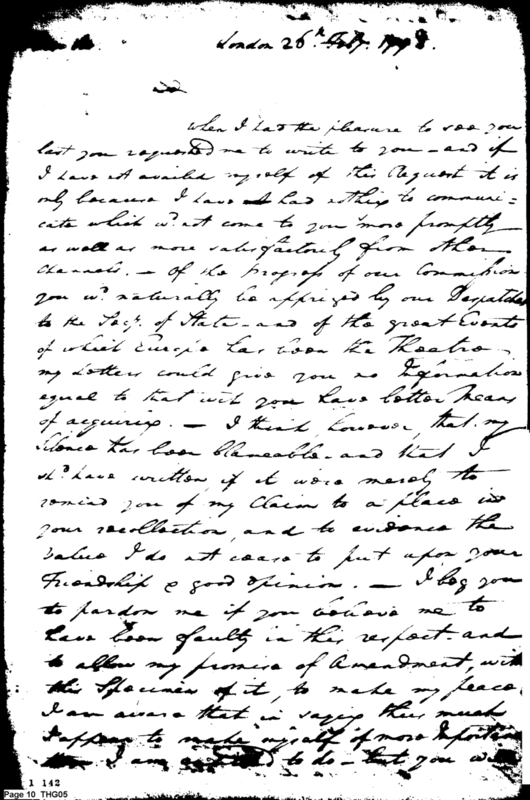 London 26th Feby. 1798.
when I had the pleasure to see you
last you requested me to write to you – and if
I have not availed myself of this Request it is
only because I have had nothing to communi=
cate which wd. not come to you more promptly
as well as more satisfactorily from other
Channels. – Of the Progress of our Commission
you wd. naturally be apprized by our Despatches
to the Secy. of State – and of the great Events
of which Europe has been the Theatre
my Letters could give you no Information
equal to that wch you have better Means
of acquiring. – I think, however, that my
silence has been blameable – and that I
shd. have written, if it were merely to
remind you of my Claim to a place in
your recollection, and to evidence the
value I do not cease to put upon your
Friendship & good opinion. – I beg you
to pardon me if you believe me to
have been faulty in this respect – and
to allow my promise of Amendment, with
this Specimen of it, to make my peace.
I am aware that in saying thus much
I appear to make myself of more Importance
than I am to do – but you will
1 142
Page 10 THG05